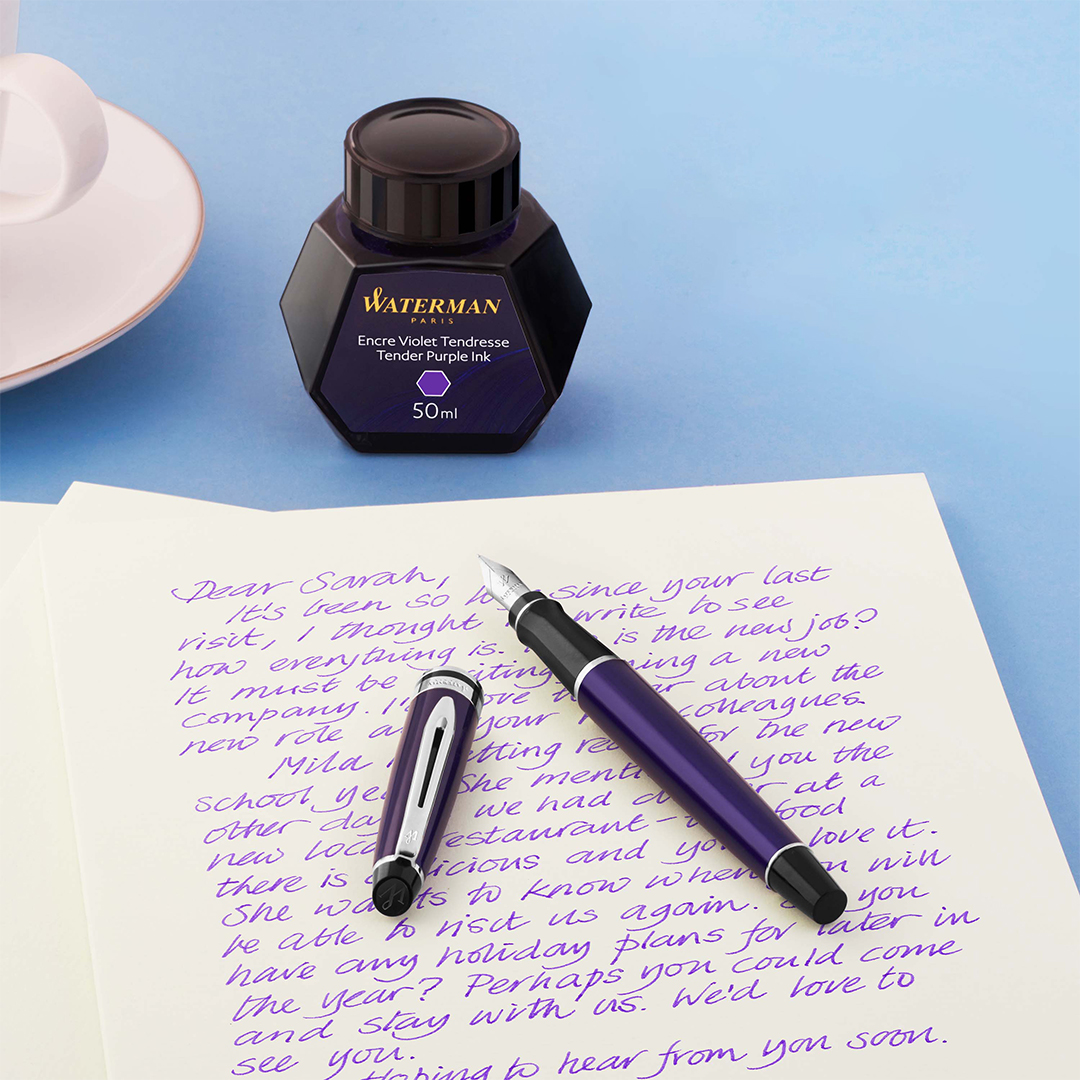 WATERMAN
PARIS
Encre Violet Tendresse
Tender Purple Ink
50ml
Dear Sarah,
It's been so since your last
visit, I thought write to see
how everything is. is the new job?
It must be a new
company. about the
new role your colleagues
Mila for the new
school She you the
other we had at a
new restaurant- food
there is and love it.
She to know when will
be able to visit us again. you
have any holiday plans for later in
the year? Perhaps you could come
and stay with us. We'd love to
see you.
Hoping to hear from you soon.